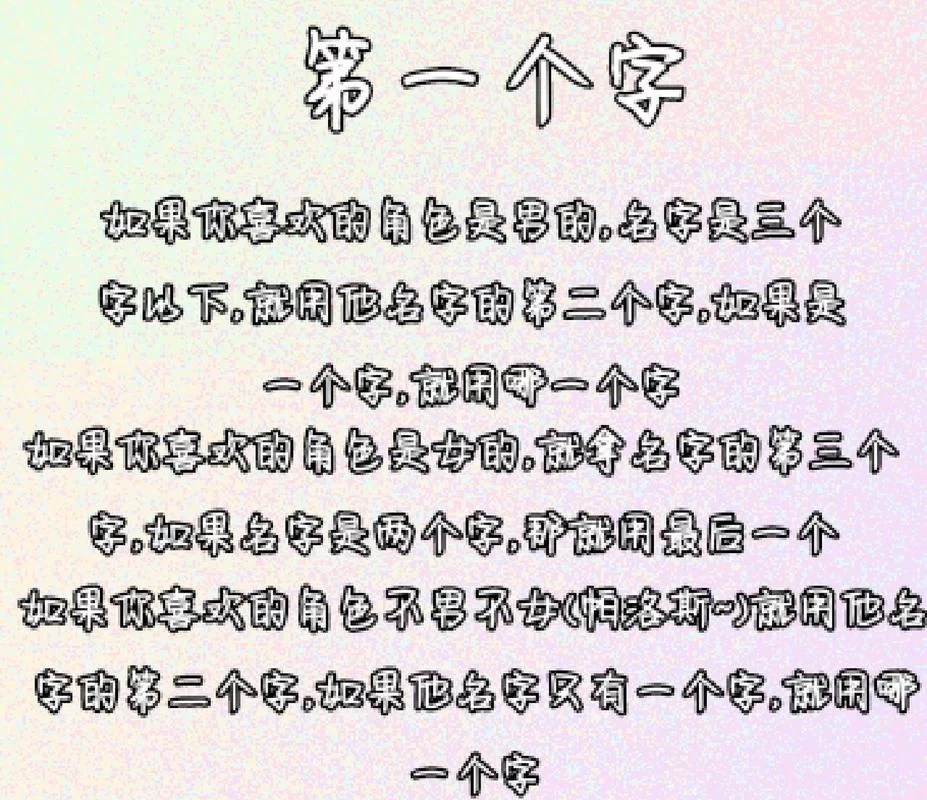 第一个字
如果你喜欢的角色是男的,名字是三个
字以下,就用他名字的第二个字,如果是
一个字,就用哪一个字
如果你喜欢的角色是女的,就拿名字的第三个
字,如果名字是两个字,那就用最后一个
如果你喜欢的角色不男不女(帕洛斯~)就用他名
字的第二个字,如果他名字只有一个字,就用哪
一个字